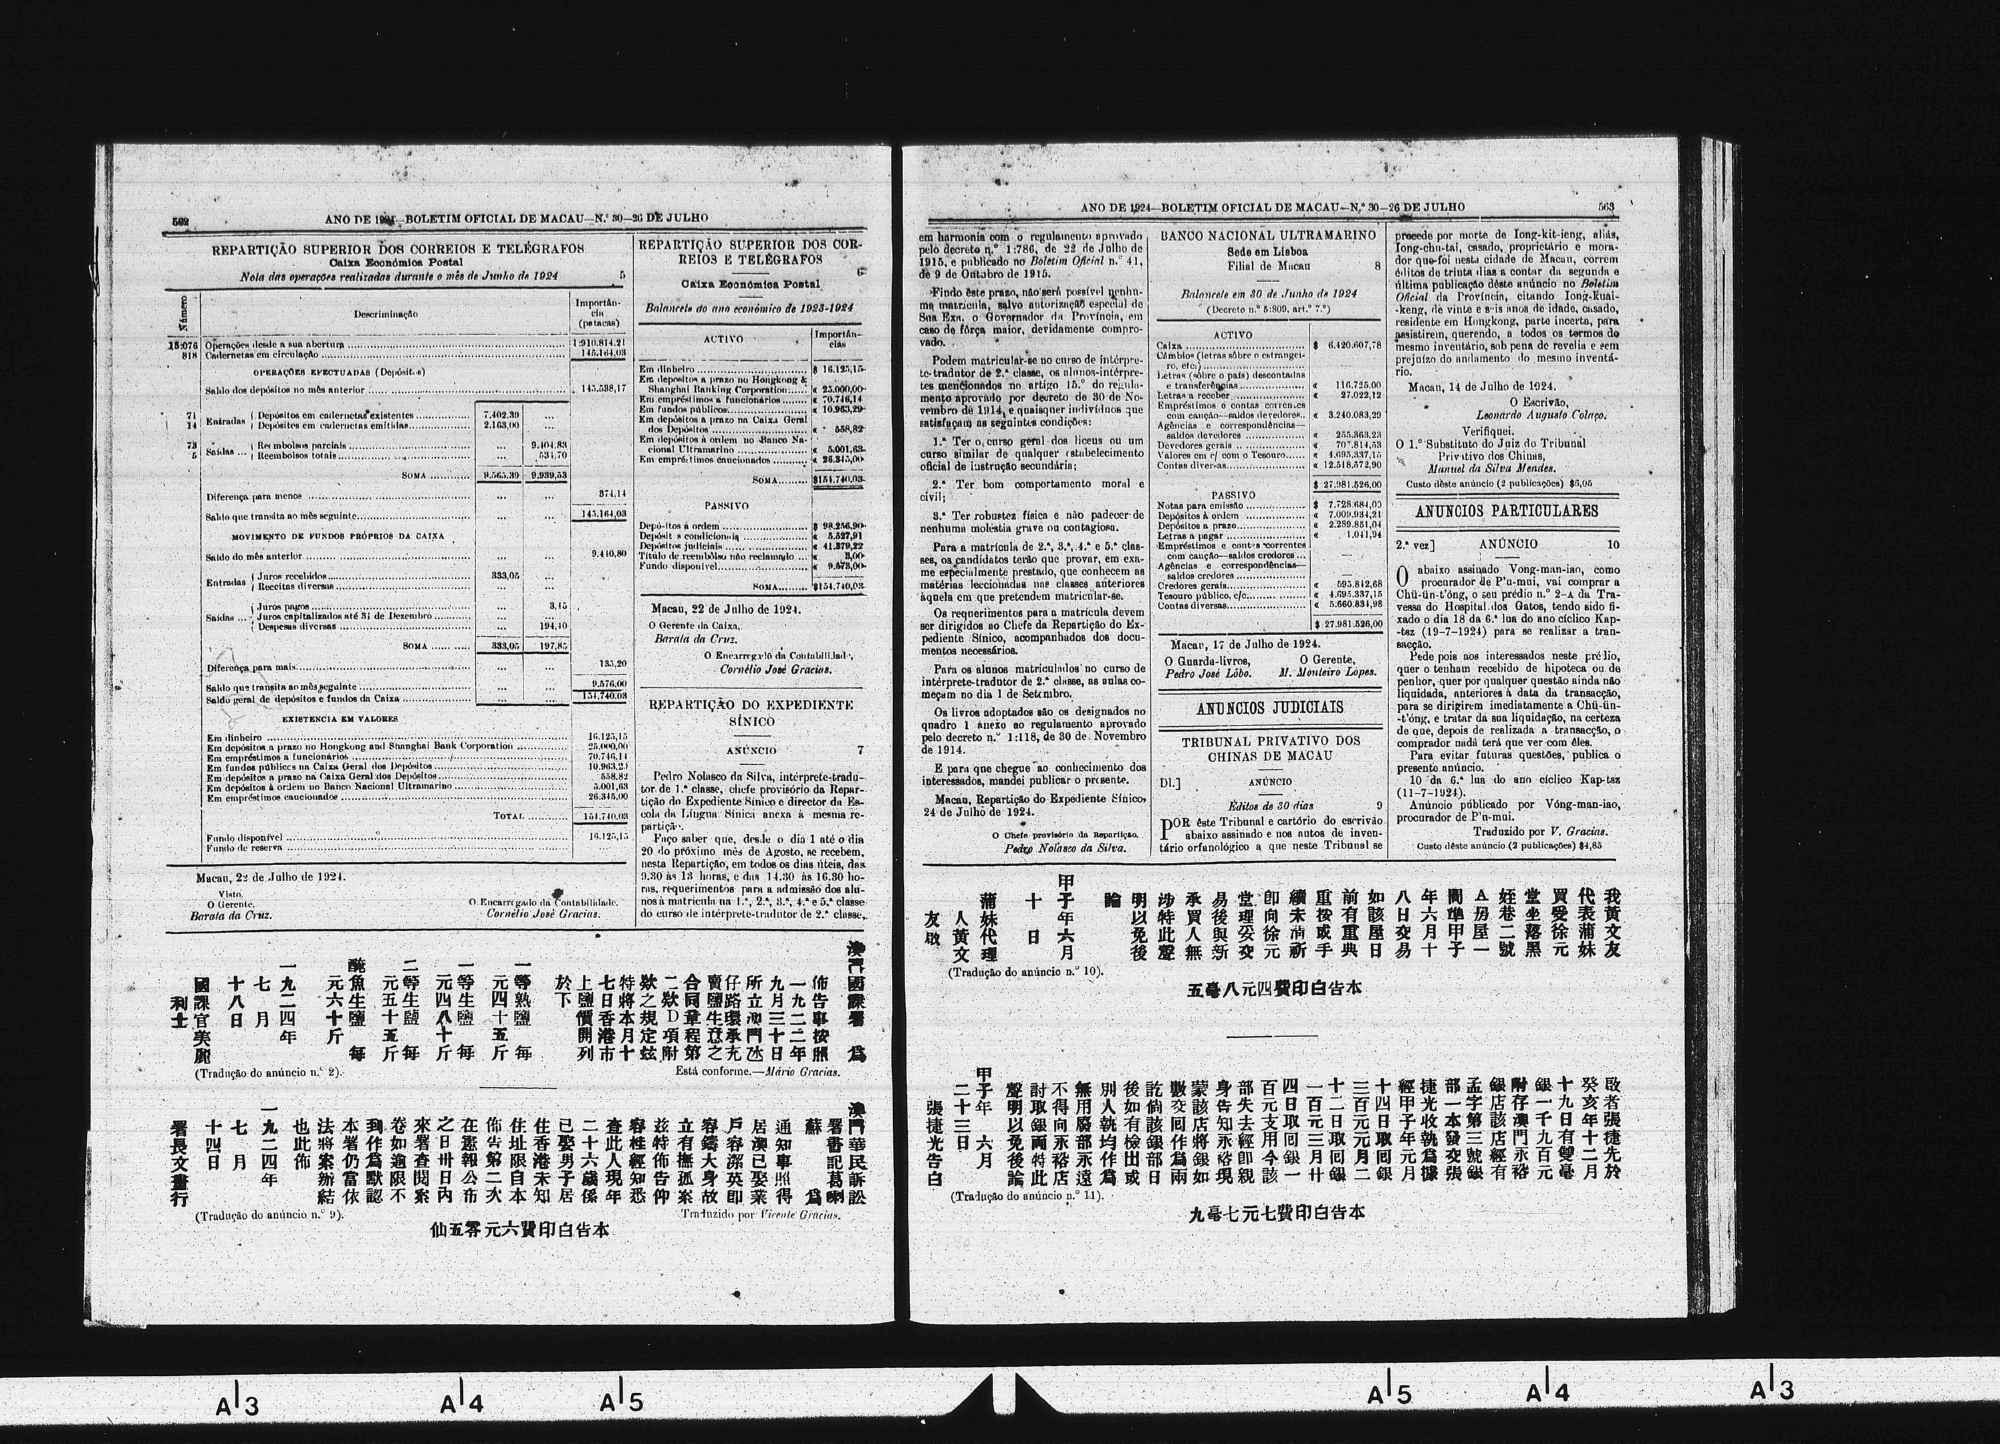 562
ANO DE 1924—BOLETIM OFICIAL DE MACAU—N.º 30—26 DE JULHO
REPARTIÇÃO SUPERIOR DOS CORREIOS E TELÉGRAFOS
Caixa Económica Postal
Nota das operações realizadas durante o mês de Junho de 1924 5
Número
Descriminação
Importân-
cia
(patacas)
15:076 Operações desde a sua abertura 1:910.814,21
818 Cadernetas em circulação 145.164,03
OPERAÇÕES EFECTUADAS (Depósitos)
Saldo dos depósitos no mês anterior 145.538,17
71 Entradas Depósitos em cadernetas existentes 7.402,39 ...
14 Depósitos em cadernetas emitidas 2.163,00 ...
73 Saídas Reembolsos parciais ... 9.404,83
5 Reembolsos totais ... 534,70
SOMA 9.565,39 9.939,53
Diferença para menos ... ... 374,14
Saldo que transita ao mês seguinte ... ... 145.164,03
MOVIMENTO DE FUNDOS PRÓPRIOS DA CAIXA
Saldo do mês anterior ... ... 9.440,80
Entradas Juros recebidos 333,05 ...
Receitas diversas ... ...
Saídas Juros pagos ... 3,45
Juros capitalizados até 31 de Dezembro ... ...
Despesas diversas ... 194,40
SOMA 333,05 197,85
Diferença para mais ... ... 135,20
Saldo que transita ao mês seguinte ... ... 9.576,00
Saldo geral de depósitos e fundos da Caixa ... ... 154.740,03
EXISTENCIA EM VALORES
Em dinheiro 16.125,15
Em depósitos a prazo no Hongkong and Shanghai Bank Corporation 25.000,00
Em empréstimos a funcionários 70.746,14
Em fundos públicos na Caixa Geral dos Depósitos 10.963,29
Em depósitos a prazo na Caixa Geral dos Depósitos 558,82
Em depósitos à ordem no Banco Nacional Ultramarino 5.001,63
Em empréstimos caucionados 26.345,00
TOTAL 154.740,03
Fundo disponível 16.125,15
Fundo de reserva
Macau, 22 de Julho de 1924.
Visto.
O Gerente,
Barata da Cruz.
O Encarregado da Contabilidade,
Cornélio José Gracias.
REPARTIÇÃO SUPERIOR DOS COR-
REIOS E TELÉGRAFOS
6
Caixa Económica Postal
Balancete do ano económico de 1923-1924
ACTIVO
Importân-
cias
Em dinheiro $ 16.125,15
Em depósitos a prazo no Hongkong &
Shanghai Banking Corporation « 25.000,00
Em empréstimos a funcionários « 70.746,14
Em fundos públicos « 10.963,29
Em depósitos a prazo na Caixa Geral
dos Depósitos « 558,82
Em depósitos à ordem no Banco Na-
cional Ultramarino « 5.001,63
Em empréstimos caucionados « 26.345,00
SOMA $154.740,03
PASSIVO
Depósitos à ordem $ 98.256,90
Depósitos condicionais « 5.527,91
Depósitos judiciais « 41.379,22
Título de reembôlso não reclamado « 3,00
Fundo disponível « 9.573,00
SOMA $154.740,03
Macau, 22 de Julho de 1924.
O Gerente da Caixa,
Barata da Cruz.
O Encarregado da Contabilidade,
Cornélio José Gracias.
REPARTIÇÃO DO EXPEDIENTE
SÍNICO
ANÚNCIO 7
Pedro Nolasco da Silva, intérprete-tradu-
tor de 1.ª classe, chefe provisório da Repar-
tição do Expediente Sínico e director da Es-
cola da Língua Sínica anexa à mesma re-
partição.
Faço saber que, desde o dia 1 até o dia
20 do próximo mês de Agosto, se recebem,
nesta Repartição, em todos os dias úteis, das
9.30 às 13 horas, e das 14.30 às 16.30 ho-
ras, requerimentos para a admissão dos alu-
nos à matrícula na 1.ª, 2.ª, 3.ª, 4.ª e 5.ª classe
do curso de intérprete-tradutor de 2.ª classe,
澳門國課署 為
佈告事按照
一九二二年
九月三十日
所立澳門氹
仔路環承充
賣鹽生意之
合同章程第
二欵D項附
欵之規定玆
特將本月十
七日香港市
上鹽價開列
於下
一等熟鹽 每
元四十五斤
一等生鹽 每
元四八十斤
二等生鹽 每
元五十五斤
醃魚生鹽 每
元六十斤
一九二四年
七 月
十八日
國課官美麗
利士
(Tradução do anúncio n.º 2).
Está conforme.—Mário Gracias.
澳門華民訴訟
署書記葛喇
蘇 為
通知事照得
居澳已娶業
戶容潔英即
容鑄大身故
立有撫孤案
玆特佈告仰
容桂經知悉
查此人現年
二十六歲係
已娶男子居
住香港未知
住址限自本
佈告第二次
在憲報公布
之日卅日內
來署查閱案
卷如逾限不
到作為默認
本署仍當依
法將案辦結
也此佈
一九二四年
七 月
十四日
署長文晝行
(Tradução do anúncio n.º 9).
Traduzido por Vicente Gracias.
仙五零元六費印白告本
ANO DE 1924—BOLETIM OFICIAL DE MACAU—N.º 30—26 DE JULHO
563
em harmonia com o regulamento aprovado
pelo decreto n.º 1:786, de 22 de Julho de
1915, e publicado no Boletim Oficial n.º 41,
de 9 de Outubro de 1915.
Findo êste prazo, não será possível nenhu-
ma matrícula, salvo autorização especial de
Sua Exa. o Governador da Província, em
caso de fôrça maior, devidamente compro-
vado.
Podem matricular-se no curso de intérpre-
te-tradutor de 2.ª classe, os alunos-intérpre-
tes mencionados no artigo 15.º do regula-
mento aprovado por decreto de 30 de No-
vembro de 1914, e quaisquer indivíduos que
satisfaçam as seguintes condições:
1.ª Ter o curso geral dos liceus ou um
curso similar de qualquer estabelecimento
oficial de instrução secundária;
2.ª Ter bom comportamento moral e
civil;
3.ª Ter robustez física e não padecer de
nenhuma moléstia grave ou contagiosa.
Para a matrícula de 2.ª, 3.ª, 4.ª e 5.ª clas-
ses, os candidatos terão que provar, em exa-
me especialmente prestado, que conhecem as
matérias leccionadas nas classes anteriores
àquela em que pretendem matricular-se.
Os requerimentos para a matrícula devem
ser dirigidos ao Chefe da Repartição do Ex-
pediente Sínico, acompanhados dos docu-
mentos necessários.
Para os alunos matriculados no curso de
intérprete-tradutor de 2.ª classe, as aulas co-
meçam no dia 1 de Setembro.
Os livros adoptados são os designados no
quadro 1 anexo ao regulamento aprovado
pelo decreto n.º 1:118, de 30 de Novembro
de 1914.
E para que chegue ao conhecimento dos
interessados, mandei publicar o presente.
Macau, Repartição do Expediente Sínico,
24 de Julho de 1924.
O Chefe provisório da Repartição,
Pedro Nolasco da Silva.
BANCO NACIONAL ULTRAMARINO
Sede em Lisboa
Filial de Macau 8
Balancete em 30 de Junho de 1924
(Decreto n.º 5:809, art.º 7.º)
ACTIVO
Caixa $ 6.420.607,78
Câmbios (letras sôbre o estrangei-
ro, etc.) —
Letras (sôbre o país) descontadas
e transferências « 116.725,00
Letras a receber « 27.022,12
Empréstimos e contas correntes
com caução—saldos devedores « 3.240.083,29
Agências e correspondências—
saldos devedores « 255.363,23
Devedores gerais « 707.814,53
Valores em c/ com o Tesouro « 4.695.337,15
Contas diversas « 12.518.572,90
$ 27.981.526,00
PASSIVO
Notas para emissão $ 7.728.684,00
Depósitos à ordem « 7.009.934,21
Depósitos a prazo « 2.289.851,04
Letras a pagar « 1.041,94
Empréstimos e contas correntes
com caução—saldos credores —
Agências e correspondências—
saldos credores —
Credores gerais « 595.842,68
Tesouro público, c/c « 4.695.337,15
Contas diversas « 5.660.834,98
$ 27.981.526,00
Macau, 17 de Julho de 1924.
O Guarda-livros,
Pedro José Lôbo.
O Gerente,
M. Monteiro Lopes.
ANUNCIOS JUDICIAIS
TRIBUNAL PRIVATIVO DOS
CHINAS DE MACAU
Dl.] ANÚNCIO
Éditos de 30 dias 9
POR êste Tribunal e cartório do escrivão
abaixo assinado e nos autos de inven-
tário orfanológico a que neste Tribunal se
procede por morte de Iong-kit-ieng, aliás,
Iong-chu-tai, casado, proprietário e mora-
dor que foi nesta cidade de Macau, correm
éditos de trinta dias a contar da segunda e
última publicação dêste anúncio no Boletim
Oficial da Província, citando Iong-kuai-
-keng, de vinte e seis anos de idade, casado,
residente em Hongkong, parte incerta, para
assistirem, querendo, a todos os termos do
mesmo inventário, sob pena de revelia e sem
prejuízo do andamento do mesmo inventá-
rio.
Macau, 14 de Julho de 1924.
O Escrivão,
Leonardo Augusto Colaço.
Verifiquei.
O 1.º Substituto do Juiz do Tribunal
Privativo dos Chinas,
Manuel da Silva Mendes.
Custo dêste anúncio (2 publicações) $6,05
ANUNCIOS PARTICULARES
2.ª vez] ANÚNCIO 10
O abaixo assinado Vong-man-iao, como
procurador de P'u-mui, vai comprar a
Chü-ün-t'óng, o seu prédio n.º 2-A da Tra-
vessa do Hospital dos Gatos, tendo sido fi-
xado o dia 18 da 6.ª lua do ano cíclico Kap-
-tsz (19-7-1924) para se realizar a tran-
sacção.
Pede pois aos interessados neste prédio,
quer o tenham recebido de hipoteca ou de
penhor, quer por qualquer questão ainda não
liquidada, anteriores à data da transacção,
para se dirigirem imediatamente a Chü-ün-
-t'óng, e tratar da sua liquidação, na certeza
de que, depois de realizada a transacção, o
comprador nada terá que ver com êles.
Para evitar futuras questões, publica o
presente anúncio.
10 da 6.ª lua do ano cíclico Kap-tsz
(11-7-1924).
Anúncio públicado por Vóng-man-iao,
procurador de P'u-mui.
Traduzido por V. Gracias.
Custo dêste anúncio (2 publicações) $4,85
我黃文友
代表蒲妹
買受徐元
堂坐落黑
姪巷二號
A房屋一
間準甲子
年六月十
八日交易
如該屋日
前有重典
重按或手
續未清祈
即向徐元
堂理妥交
易後與新
承買人無
涉特此聲
明以免後
論
甲子年六月
十 日
蒲妹代理
人黃文
友啟
(Tradução do anúncio n.º 10).
五毫八元四費印白告本
啟者張捷先於
癸亥年十二月
十九日有雙毫
銀一千九百元
附存澳門永裕
銀店該店經有
孟字第三號銀
部一本發交張
捷光收執為據
經甲子年元月
十四日取回銀
三百元元月二
十二日取回銀
一百元三月廿
四日取回銀一
百元支用今該
部失去經即親
身告知永裕現
蒙該店將銀如
數交回作為兩
訖倘該銀部日
後如有檢出或
別人執均作為
無用廢部永遠
不得向永裕店
討取銀両特此
聲明以免後論
甲子年 六月
二十三日
張捷光告白
(Tradução do anúncio n.º 11).
九毫七元七費印白告本
A3
A4
A5
A5
A4
A3